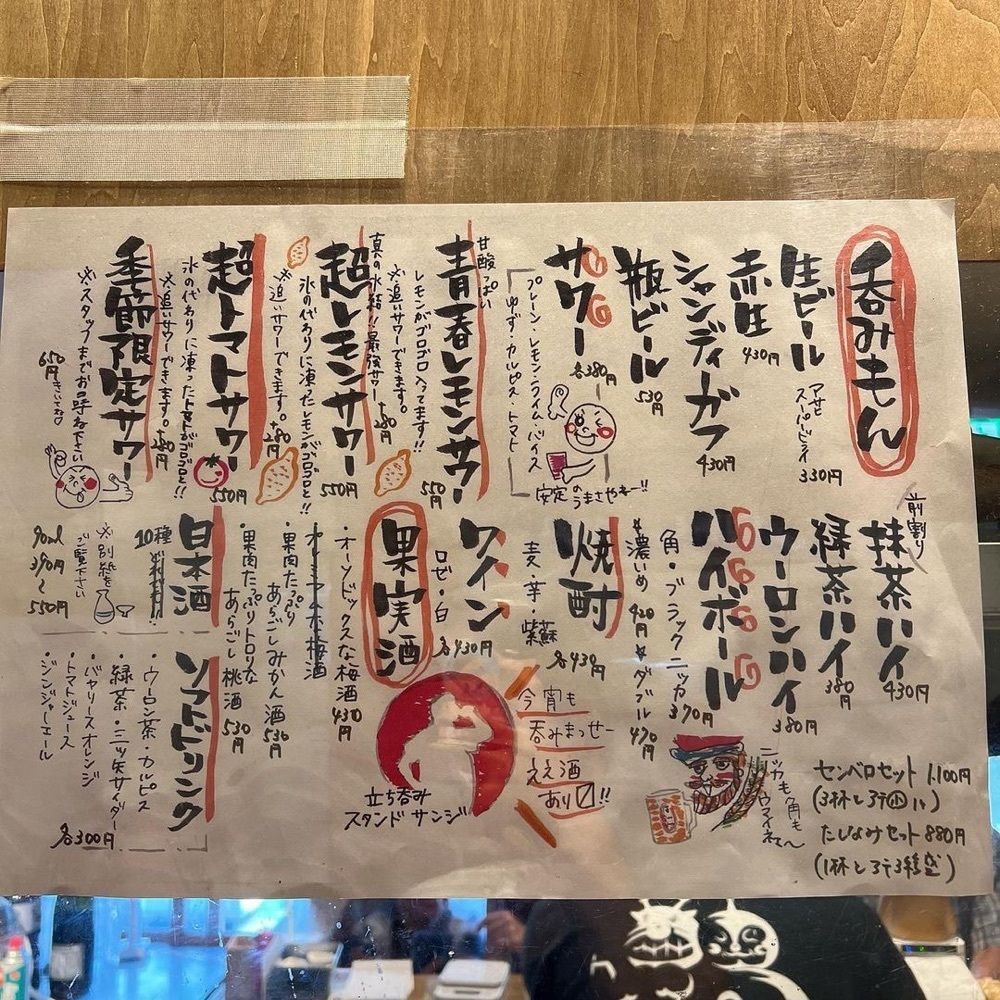 呑みもん
生ビール
アサヒ
スーパードライ
330円
赤生
430円
シャンディガフ
430円
瓶ビール
530円
サワー
各380円
プレーン・レモン・ライム・バイス
ゆず・カルピス・トマト
安定のうまさやねー!!
甘酸っぱい
青春レモンサワー
550円
レモンがゴロゴロ入ってます!!
※追いサワーできます。+280円
真の氷結!!最強サワー
超レモンサワー
550円
氷の代わりに凍ったレモンがゴロゴロと!!
※追いサワーできます。+280円
超トマトサワー
550円
氷の代わりに凍ったトマトがゴロゴロと!!
※追いサワーできます。+280円
季節限定サワー
※スタッフまでお呼び下さい
650円
前割り
抹茶ハイ
430円
緑茶ハイ
380円
ウーロンハイ
380円
ハイボール
角・ブラックニッカ 370円
濃いめ 420円 ダブル 470円
ニッカも角も
ウマイネェ〜
焼酎
麦・芋・紫蘇
各430円
ワイン
ロゼ・白
各430円
今宵も
呑みまっせー
ええ酒
あり〼!!
立ち呑み
スタンドサンジ
果実酒
・オーソドックスな梅酒 430円
・果肉たっぷり
あらごしみかん酒 530円
・果肉たっぷりトロリな
あらごし桃酒 530円
日本酒
10種
※別紙を
ご覧下さい
90ml
390円
〜
550円
ソフトドリンク
・ウーロン茶・カルピス
・緑茶・三ツ矢サイダー
・バヤリースオレンジ
・トマトジュース
・ジンジャーエール
各300円
センベロセット 1,100円
たしなみセット 880円